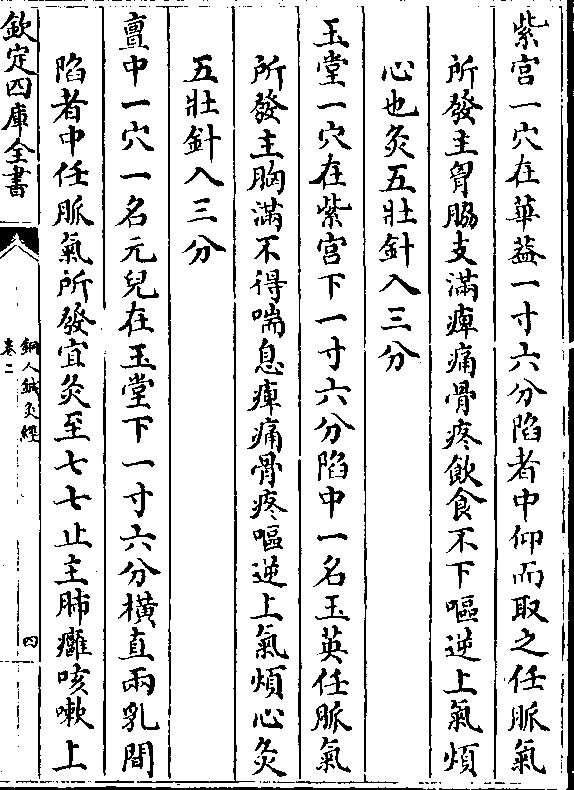 紫宫一穴在華葢一寸六分陷者中仰而取之任脈氣
所發主胷脇支滿痺痛骨疼飲食不下嘔逆上氣煩
心也灸五壯針入三分
玉堂一穴在紫宫下一寸六分陷中一名玉英任脈氣
所發主胸滿不得喘息痺痛骨疼嘔逆上氣煩心灸
五壯針入三分
亶中一穴一名元兒在玉堂下一寸六分横直兩乳間
陷者中任脈氣所發宜灸至七七止主肺癰咳嗽上
欽定四庫全書
銅人鍼灸經
卷二
四